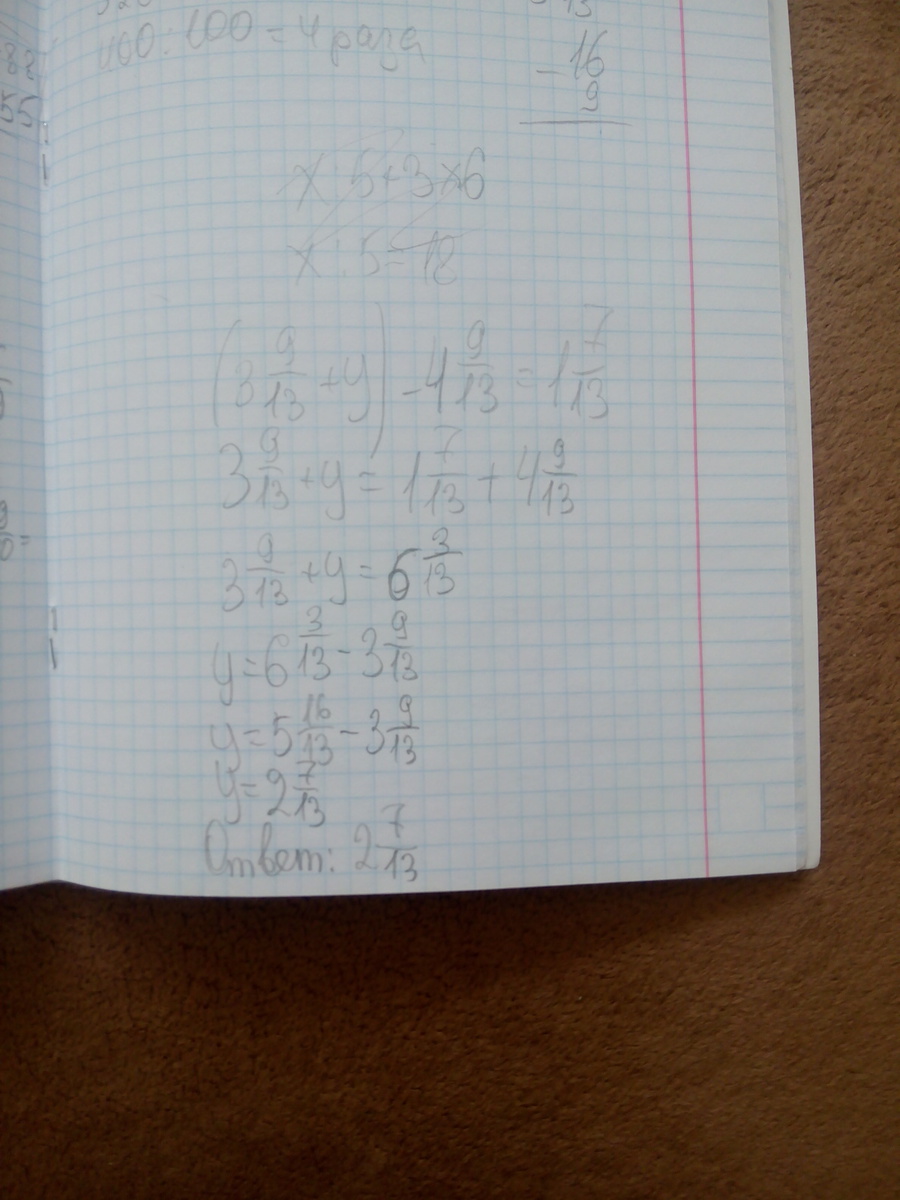 400 : 100 = 4 раза
- 16
9
x : 5 + 3 x 6
x : 5 = 18
(3 9/13 + y) - 4 9/13 = 1 7/13
3 9/13 + y = 1 7/13 + 4 9/13
3 9/13 + y = 6 3/13
y = 6 3/13 - 3 9/13
y = 5 16/13 - 3 9/13
y = 2 7/13
Ответ: 2 7/13